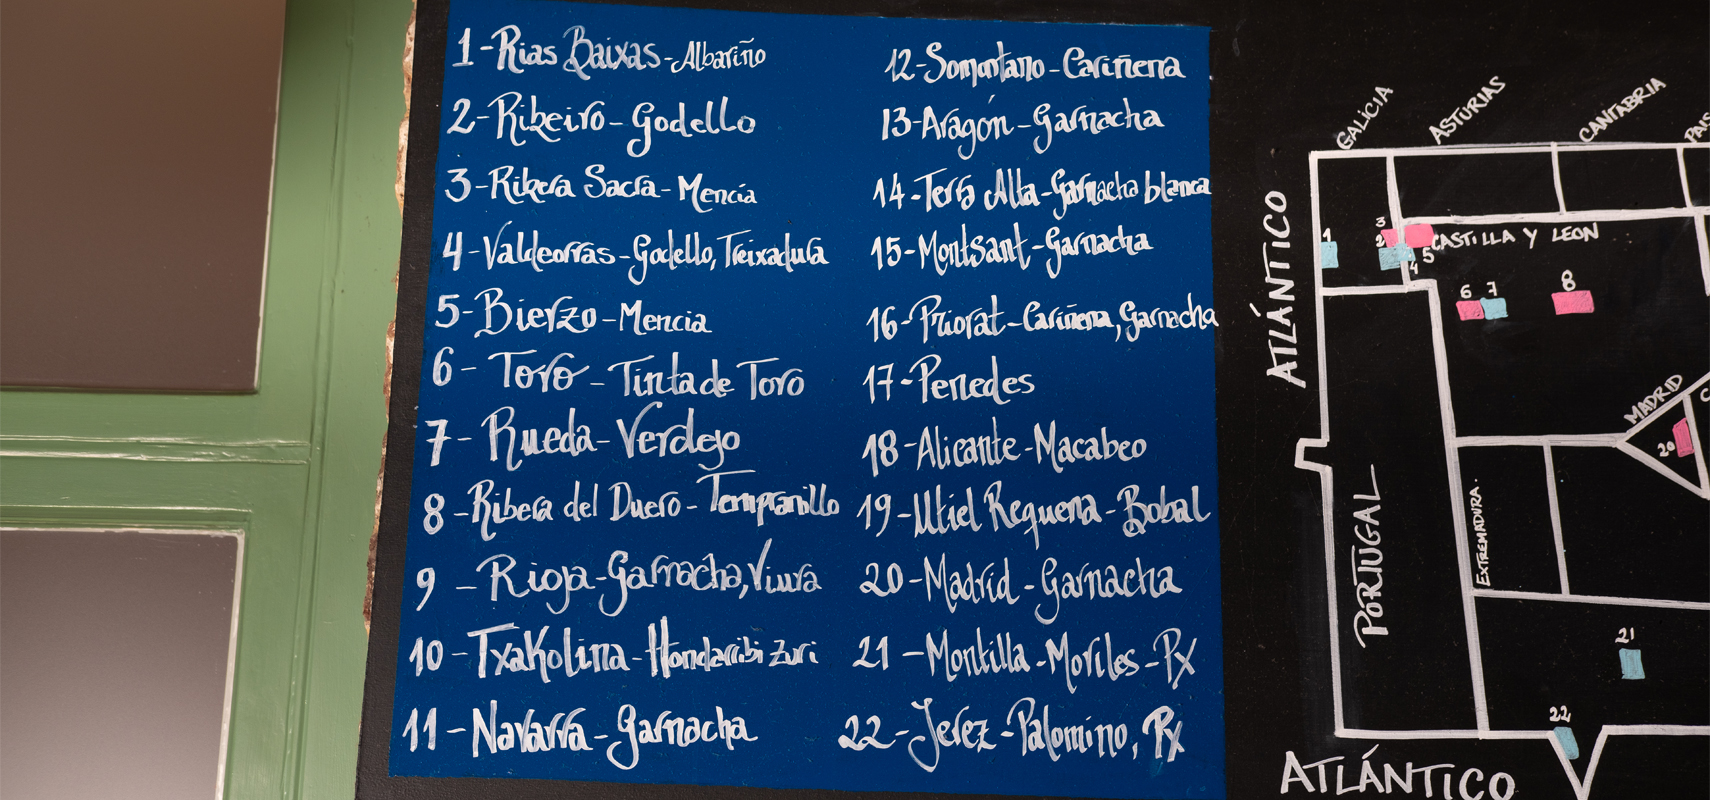 1-Rias Baixas-Albariño
2-Ribeiro-Godello
3-Ribera Sacra-Mencía
4-Valdeorras-Godello, Treixadura
5-Bierzo-Mencia
6-Toro-Tinta de Toro
7-Rueda-Verdejo
8-Ribera del Duero-Tempranillo
9-Rioja-Garnacha, Viura
10-Txakolina-Hondarribi Zuri
11-Navarra-Garnacha
12-Somontano-Cariñena
13-Aragón-Garnacha
14-Terra Alta-Garnacha blanca
15-Montsant-Garnacha
16-Priorat-Cariñena, Garnacha
17-Penedes
18-Alicante-Macabeo
19-Utiel Requena-Bobal
20-Madrid-Garnacha
21-Montilla-Moriles-PX
22-Jerez-Palomino, PX
GALICIA
ASTURIAS
CANTABRIA
PAIS
ATLÁNTICO
1
3
2
4
5
CASTILLA Y LEON
6
7
8
MADRID
20
PORTUGAL
EXTREMADURA.
21
22
ATLÁNTICO